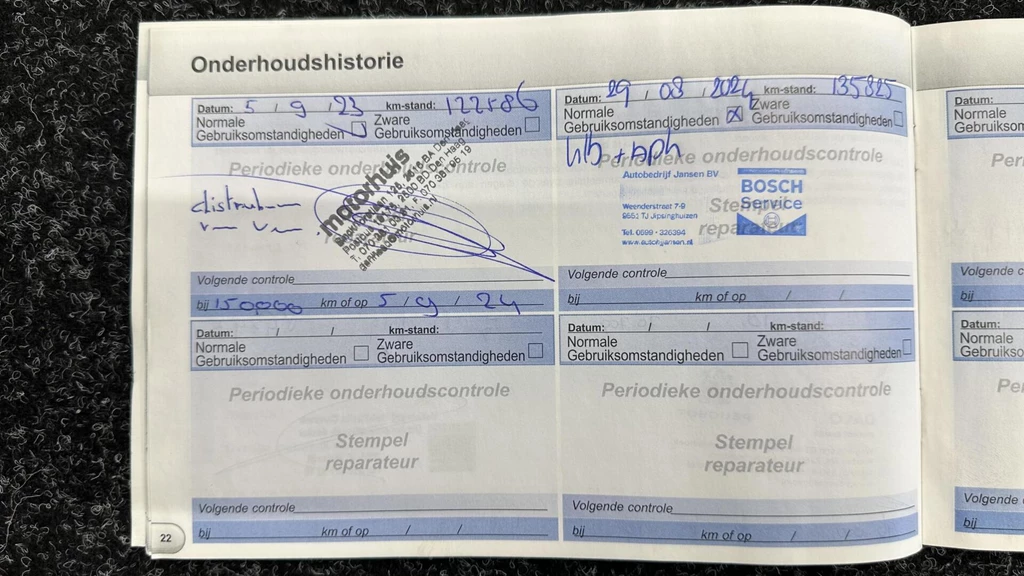 Onderhoudshistorie
Datum: 5 / 9 / 23 km-stand: 122586
Normale Gebruiksomstandigheden Zware Gebruiksomstandigheden
Periodieke onderhoudscontrole
motorhuis
distributie
Volgende controle
bij 150000 km of op 5 / 9 / 24
Datum: 29 / 08 / 2024 km-stand: 135825
Normale Gebruiksomstandigheden Zware Gebruiksomstandigheden
Periodieke onderhoudscontrole
Autobedrijf Jansen BV
BOSCH
Service
Weenderstraat 7-9
9551 TJ Jipsinghuizen
Tel. 0599 - 326394
www.autobjansen.nl
Stempel
reparateur
Volgende controle
bij km of op / /
Datum: / / km-stand:
Normale Gebruiksomstandigheden Zware Gebruiksomstandigheden
Periodieke onderhoudscontrole
Stempel
reparateur
Volgende controle
bij km of op / /
Datum: / / km-stand:
Normale Gebruiksomstandigheden Zware Gebruiksomstandigheden
Periodieke onderhoudscontrole
Stempel
reparateur
Volgende controle
bij km of op / /
22
Datum:
Normale
Gebruiksom
Peri
Volgende c
bij
Datum:
Normale
Gebruiksom
Pe
Volgende
bij